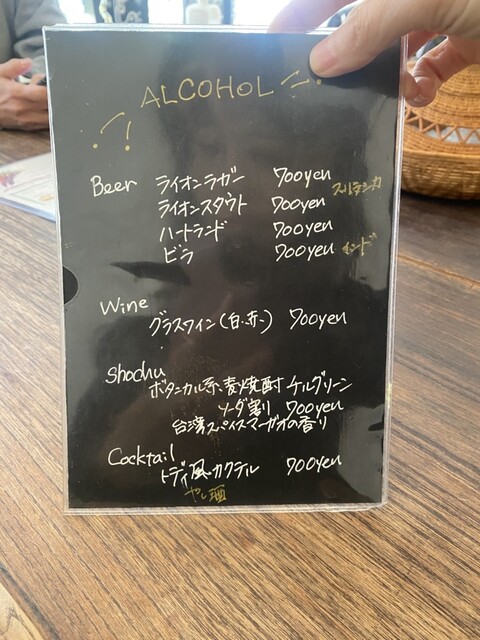 ALCOHOL
Beer ライオンラガー 700yen スリランカ
ライオンスタウト 700yen
ハートランド 700yen
ビラ 700yen インド
Wine
グラスワイン(白・赤) 700yen
Shochu
ボタニカル系、麦焼酎 ケルグリーン
ソーダ割り 700yen
台湾スパイスマーガオの香り
Cocktail
トディ風カクテル 700yen
やし酒